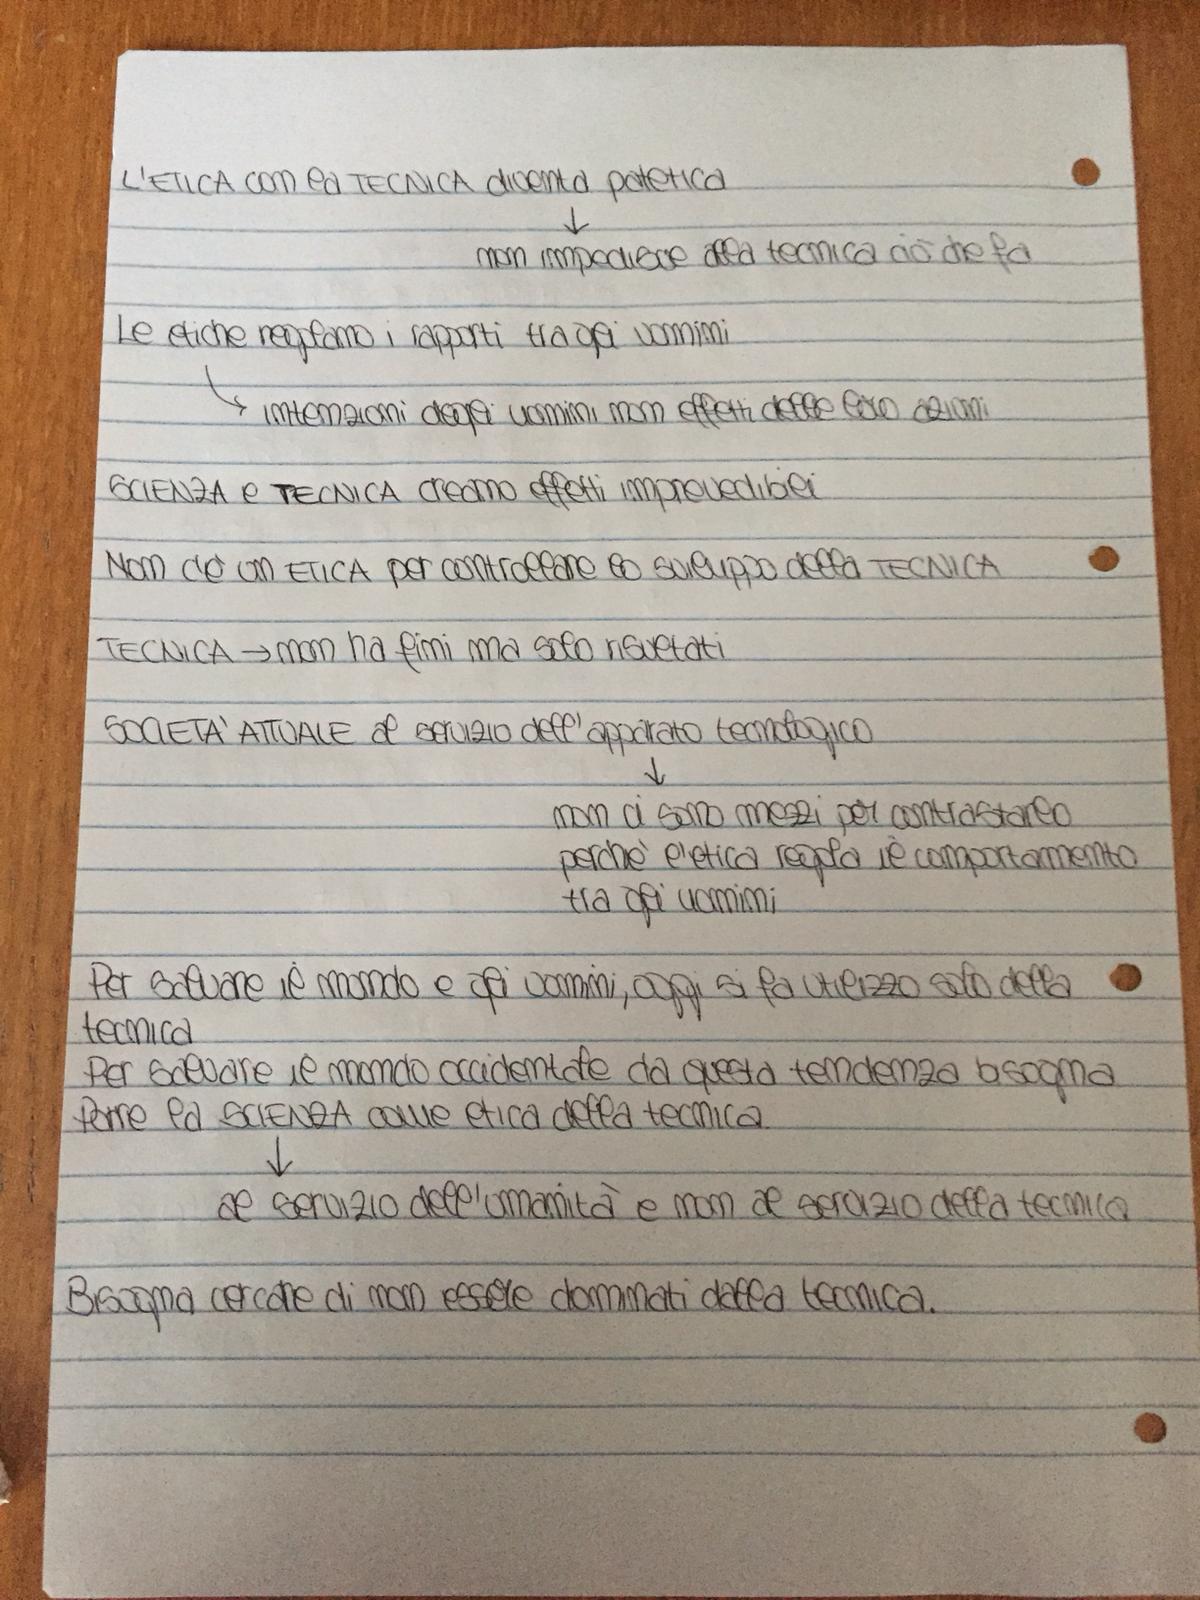 L'ETICA con la TECNICA diventa patetica
↓
non impedisce alla tecnica ciò che fa
Le etiche regolano i rapporti tra gli uomini
↳ intenzioni degli uomini non effetti delle loro azioni
SCIENZA e TECNICA creano effetti imprevedibili
Non c'è un ETICA per controllare lo sviluppo della TECNICA
TECNICA → non ha fini ma solo risultati
SOCIETA' ATTUALE al servizio dell'apparato tecnologico
↓
non ci sono mezzi per contrastarlo
perchè l'etica regola il comportamento
tra gli uomini
Per salvare il mondo e gli uomini, oggi si fa utilizzo solo della
tecnica
Per salvare il mondo occidentale da questa tendenza bisogna
porre la SCIENZA come etica della tecnica.
↓
al servizio dell'umanità e non al servizio della tecnica
Bisogna cercare di non essere dominati dalla tecnica.